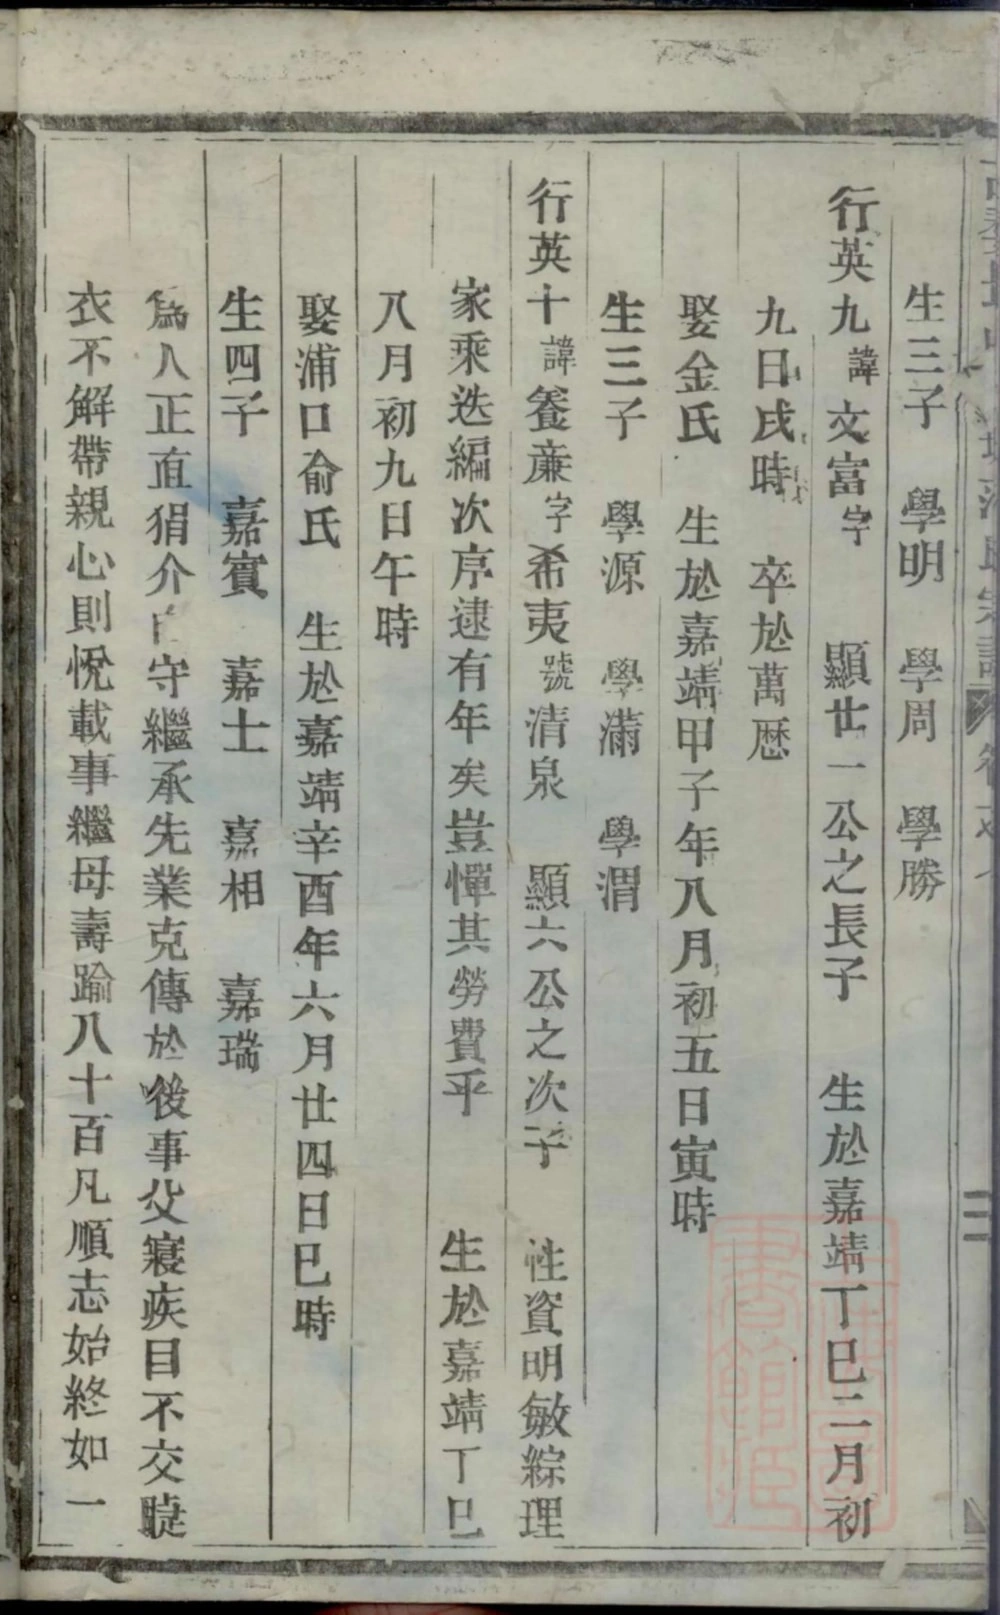 生三子 學明 學周 學勝
行英九諱文富字 顯廿一公之長子 生於嘉靖丁巳二月初
九日戌時 卒於萬歷
娶金氏 生於嘉靖甲子年八月初五日寅時
生三子 學源 學滿 學渭
行英十諱養廉字希夷號清泉 顯六公之次子 性資明敏綜理
家乘迭編次序逮有年矣豈憚其勞費乎 生於嘉靖丁巳
八月初九日午時
娶浦口俞氏 生於嘉靖辛酉年六月廿四日巳時
生四子 嘉賓 嘉士 嘉相 嘉瑞
為人正直狷介自守繼承先業克傳於後事父寢疾目不交睫
衣不解帶親心則悅載事繼母壽踰八十百凡順志始終如一